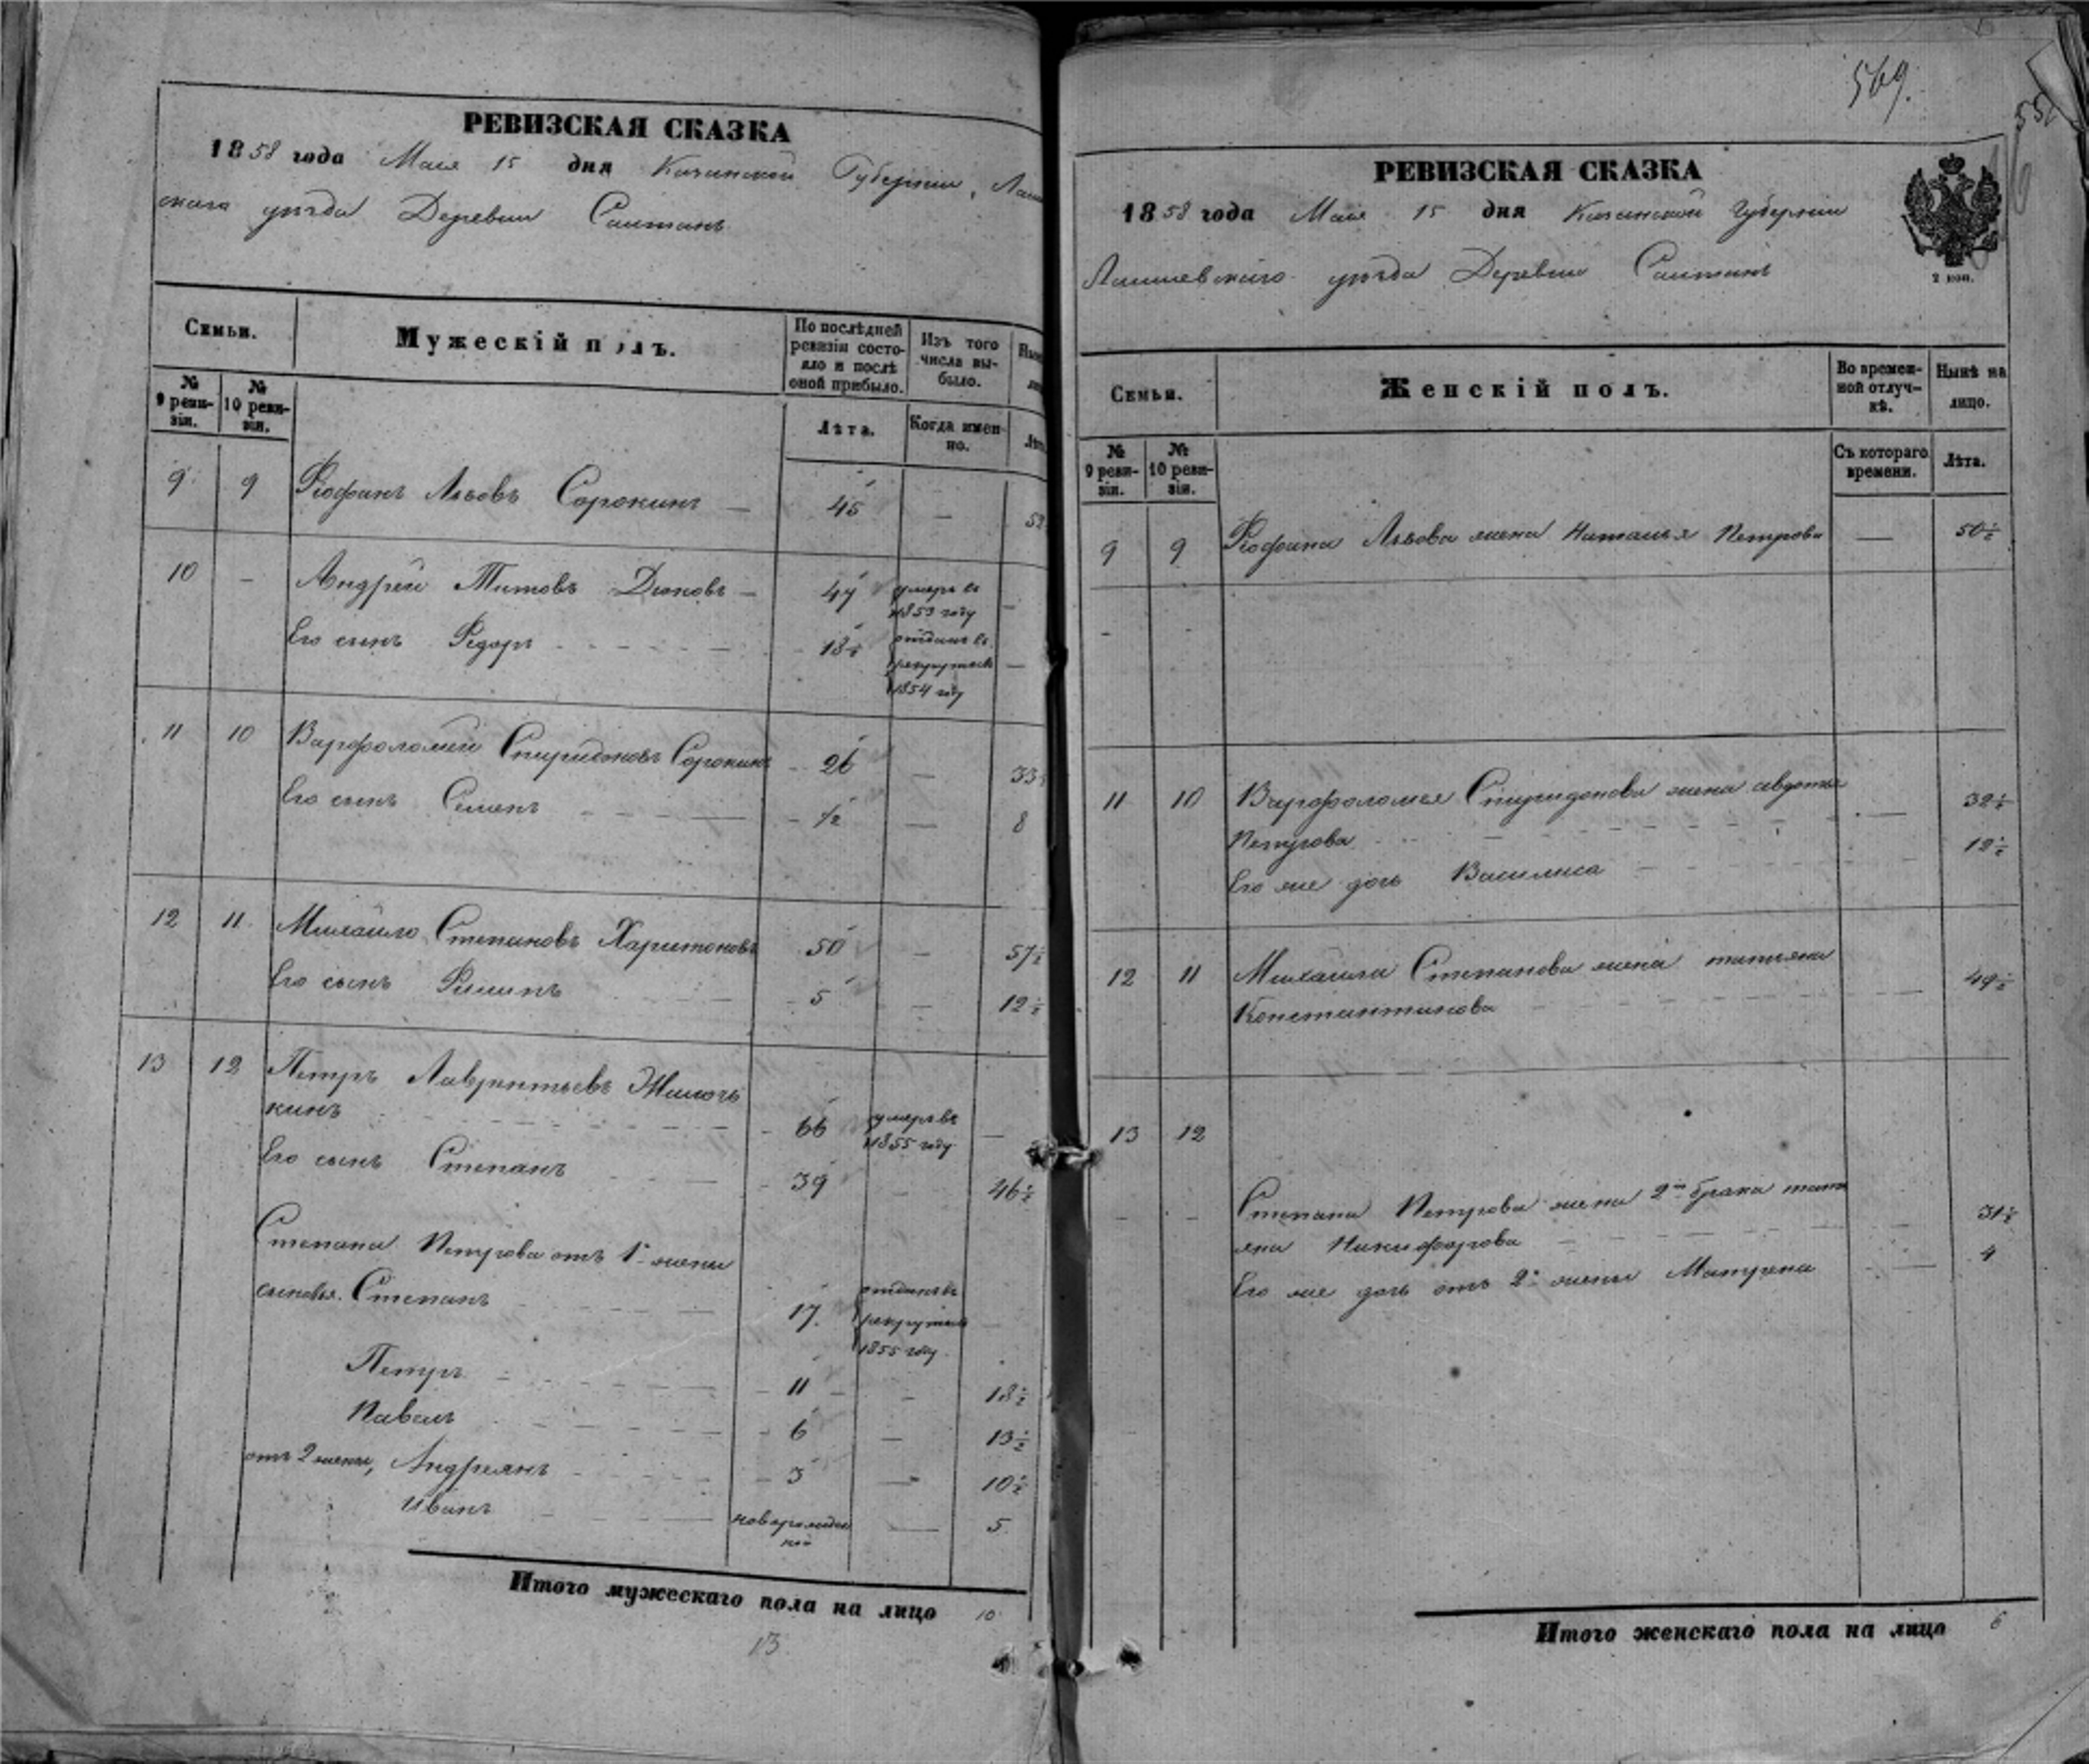 РЕВИЗСКАЯ СКАЗКА
1858 года Мая 15 дня Казанской Губернiи, Лаи
скаго уѣзда Деревни Саитанъ
Семьи.
Мужескiй полъ.
По послѣдней
ревизiи состо-
яло и послѣ
оной прибыло.
Изъ того
числа вы-
было.
№
9 реви-
зiи.
№
10 реви-
зiи.
Лѣта.
Когда имен-
но.
9 9 Феофанъ Львовъ Сорокинъ — 45 — 52
10 - Андрей Титовъ Дюковъ — 47 умеръ въ
1853 году —
Его сынъ Ѳедоръ 18½ отданъ въ
рекруты въ
1854 году —
11 10 Варфоломей Спиридоновъ Сорокинъ 26 — 33
Его сынъ Семенъ ½ — 8
12 11 Михайло Степановъ Харитоновъ 50 — 57½
Его сынъ 5 — 12½
13 12 Петръ Лаврентьевъ
кинъ 66 умеръ въ
1855 году —
Его сынъ Степанъ 39 46½
Степана Петрова отъ 1й жены
сыновья. Степанъ 17. отданъ въ
рекруты
1855 году
Петръ 11 - 18½
Павелъ 6 — 13½
отъ 2 жены, Андреянъ 3 — 10½
Иванъ новорожден
ной — 5
Итого мужескаго пола на лицо 10
13
569.
РЕВИЗСКАЯ СКАЗКА
1858 года Мая 15 дня Казанской Губернiи
Лаишевскаго уѣзда Деревни Саитанъ
2 коп.
Семьи.
Женскiй полъ.
Во времен-
ной отлуч-
кѣ.
Нынѣ на
лицо.
№
9 реви-
зiи.
№
10 реви-
зiи.
Съ котораго
времени.
Лѣта.
9 9 Феофана Львова жена Наталья Петрова — 50½
- -
11 10 Варфоломея Спиридонова жена авдотья
Петрова — 32½
Его же дочь Василиса 12½
12 11 Михайла Степанова жена татьяна
Константинова — 49½
13 12
- - Степана Петрова жена 2го брака тать
яна Никифорова 31½
Его же дочь отъ 2й жены Матрена — 4
Итого женскаго пола на лицо 6